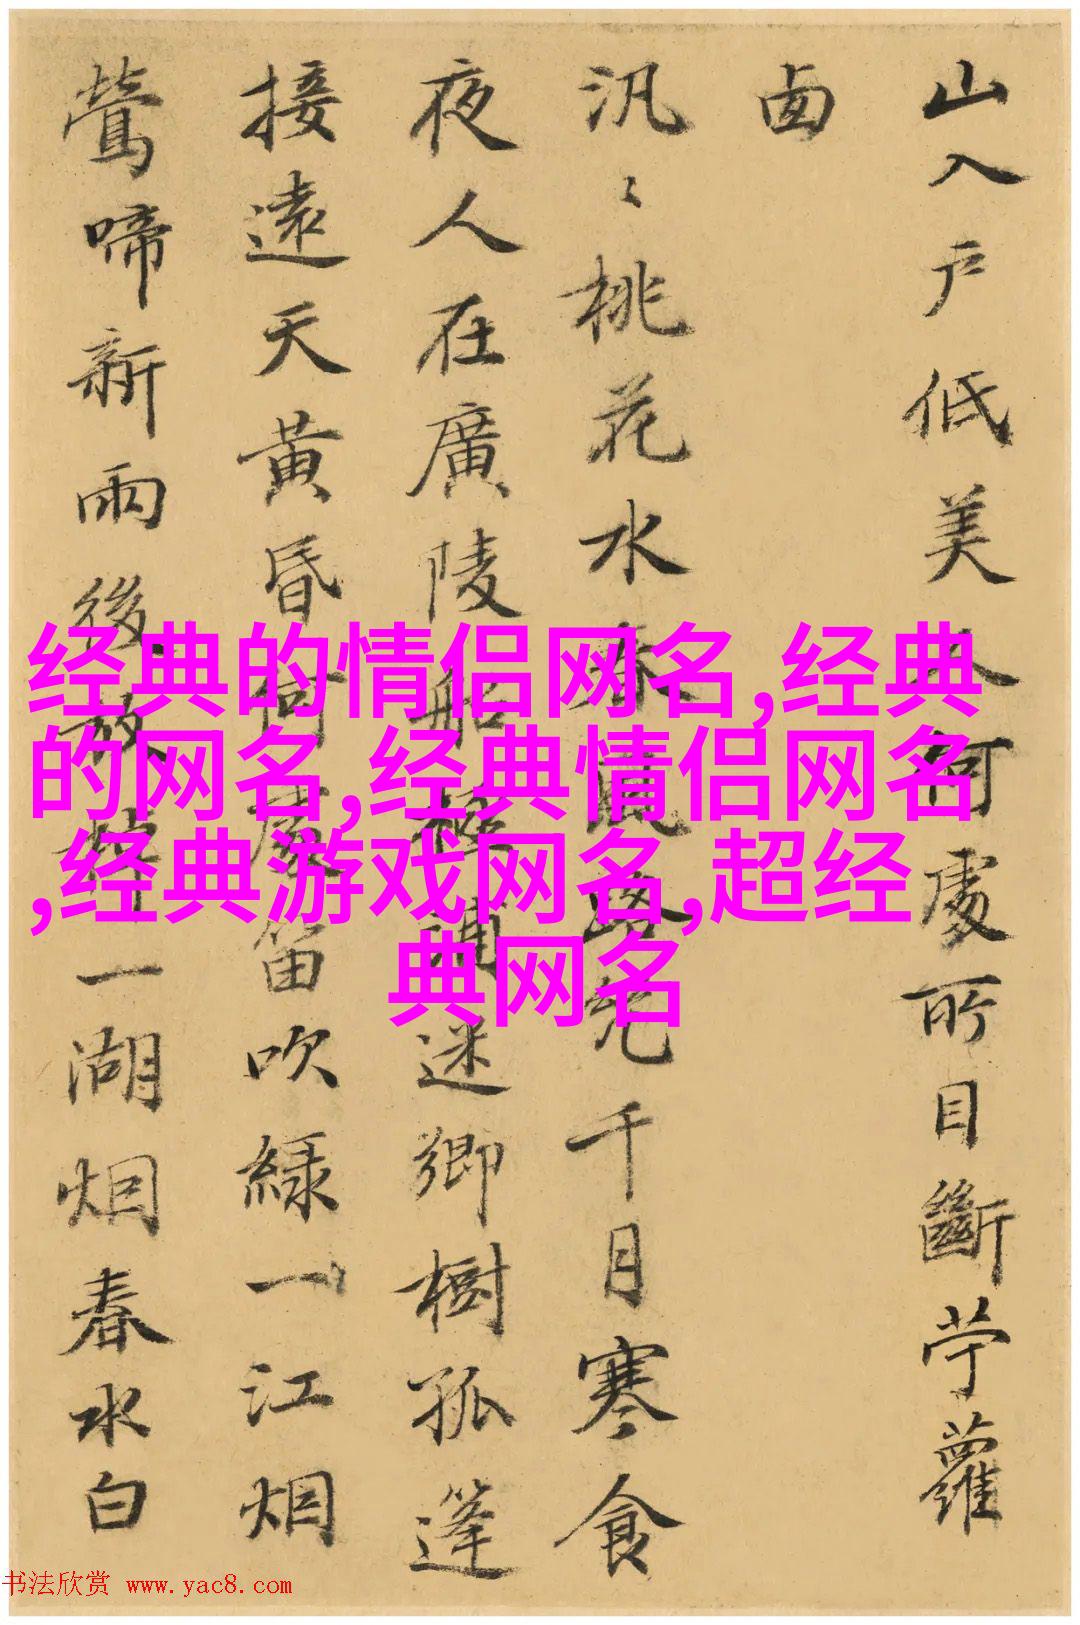 山入戶低美人何處所目斷苧蘿
汎〻桃花水春路千月寒食
夜人在廣陵船極浦迷鄉樹孤篷
接遠天黃昏何處笛吹綠一江烟
鶯啼新雨後放棹一湖烟春水白
经典的情侣网名,经典
的网名,经典情侣网名
,经典游戏网名,超经
典网名
书法欣赏 www.yac8.com